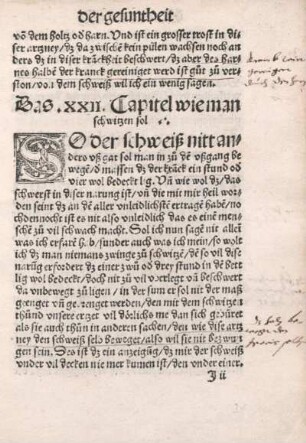 der gesuntheit
võ dem holtz od harn. Und ist ein grosser trost in di
ser artzney/ dz da zwischẽ kein pülen wachsen noch an
ders dz in diser krãckheit beschwert/ dz aber des har
nes halbẽ der kranck gereiniget werd ist gůt zů ver
ston/ vom dem schweiß wil ich ein wenig sagen.
Das .xxii. Capitel wie man
schwitzen sol
SO der schweiß nitt an
ders vß gar sol man in zů dẽ vßgang be
wegẽ/ d massen dz der krãck ein stund od
vier wol bedeckt lig. Vñ wie wol dz/ das
schwerst in diser narung ist/ võ der mit mir heil wor
den seint dz an dẽ aller vnleidlichstẽ ertragẽ habẽ/ no
chdennocht ist es nit also vnleidlich das es eine men
schẽ zů vil schwach macht. Sol ich nun sagẽ nit allein
was ich erfarẽ hab/ sunder auch was ich mein/ so wolt
ich dz man niemans zwinge zů schwitzẽ/ dẽ so vil dise
narũg erfordert dz einer zwů od drey stund in dẽ bett
lig wol bedeckt/ doch nit zů vil vberlegt võ beschwert
da vnbewegt zů ligen/ in der sum er sol nit der maß
genger võ genziget werden/ den mit dem schwitzen
thůnd vnser vnleidigen vil dörlichs me dan sich gebüret
als sie auch thůn in anderen sachen/ den wie dise artz
ney den schweiß selb beweget/ also wil sie nit bezwũ
gen sein. Des ist dz ein anzeigũg/ dz mir der schweiß
vnder vil decken nie mer kumen ist/ den vnder einer
J ii